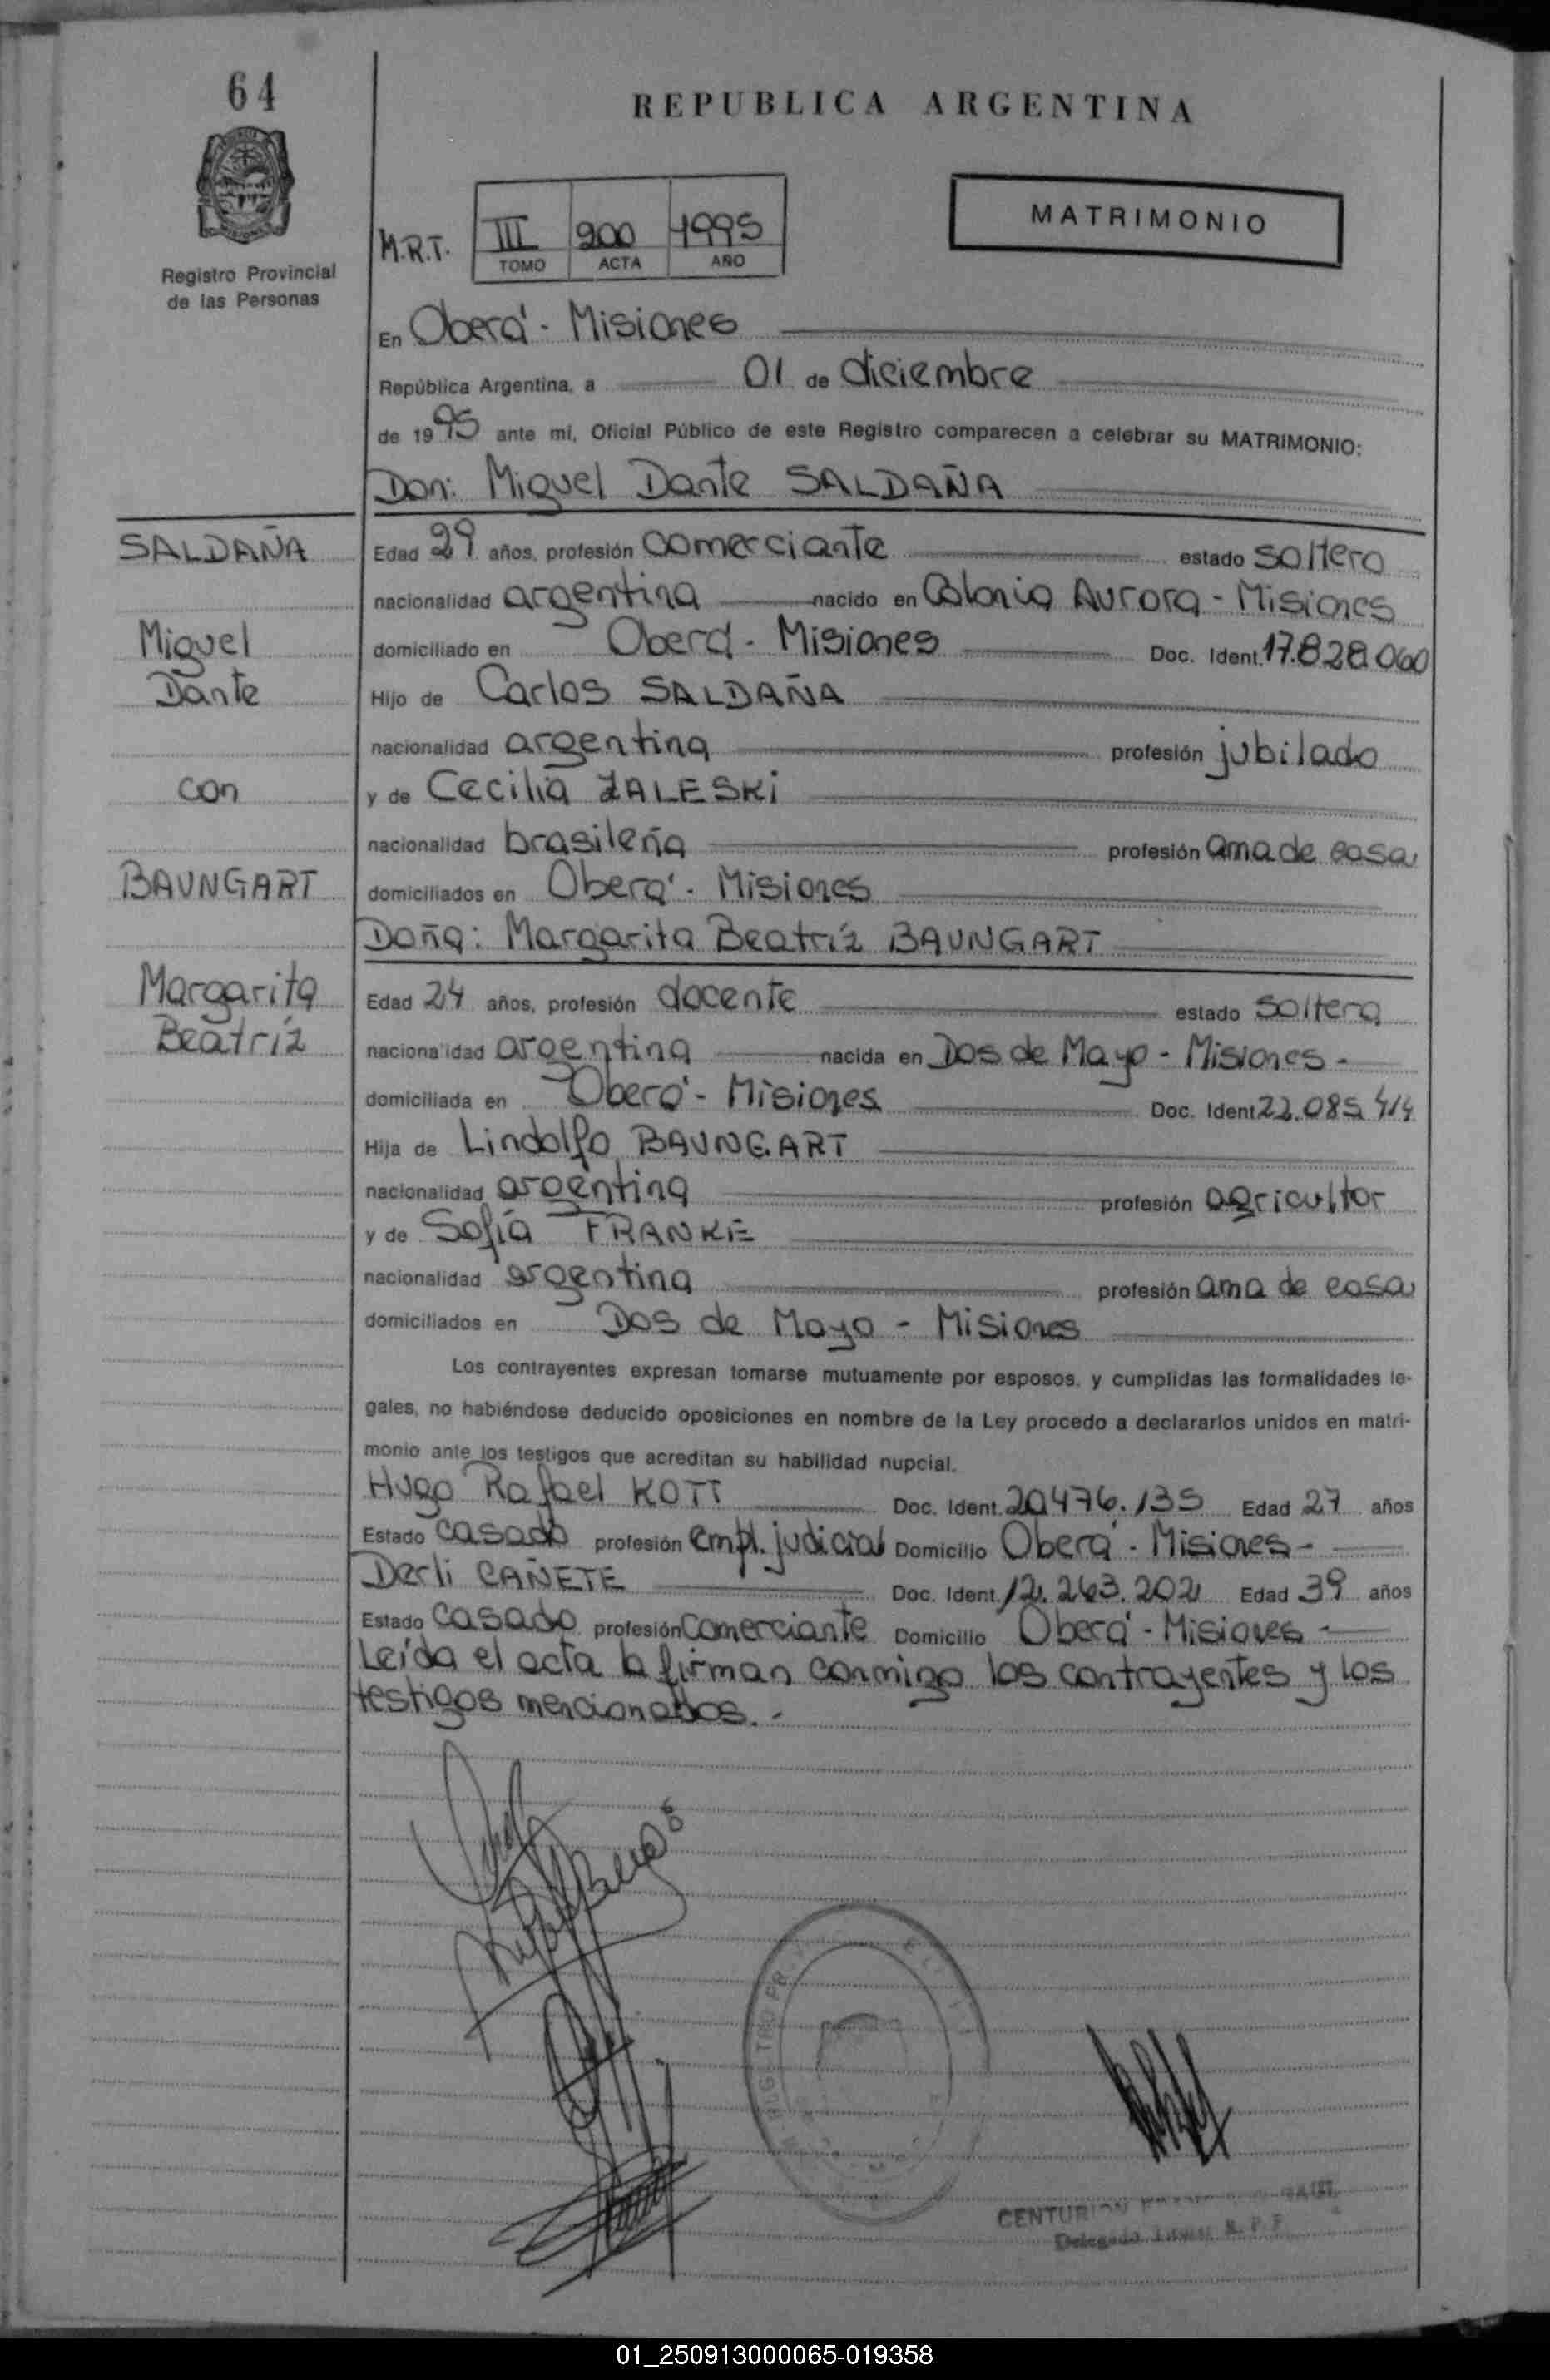 64
REPUBLICA ARGENTINA
Registro Provincial
de las Personas
M.R.T.
III 900 1995
TOMO ACTA AÑO
MATRIMONIO
En Oberá - Misiones
República Argentina, a 01 de diciembre
de 1995 ante mí, Oficial Público de este Registro comparecen a celebrar su MATRIMONIO:
Don: Miguel Dante SALDAÑA
SALDAÑA
Miguel
Dante
con
BAUNGART
Margarita
Beatríz
Edad 29 años, profesión comerciante estado soltero
nacionalidad argentina nacido en Colonia Aurora - Misiones
domiciliado en Oberá - Misiones Doc. Ident. 17.828.060
Hijo de Carlos SALDAÑA
nacionalidad argentina profesión jubilado
y de Cecilia ZALESKi
nacionalidad brasileña profesión ama de casa
domiciliados en Oberá - Misiones
Doña: Margarita Beatríz BAUNGART
Edad 24 años, profesión docente estado soltera
nacionalidad argentina nacida en Dos de Mayo - Misiones -
domiciliada en Oberá - Misiones Doc. Ident 22.085.414
Hija de Lindolfo BAUNGART
nacionalidad argentina profesión agricultor
y de Sofía FRANKE
nacionalidad argentina profesión ama de casa
domiciliados en Dos de Mayo - Misiones
Los contrayentes expresan tomarse mutuamente por esposos, y cumplidas las formalidades le-
gales, no habiéndose deducido oposiciones en nombre de la Ley procedo a declararlos unidos en matri-
monio ante los testigos que acreditan su habilidad nupcial.
Hugo Rafael KOTT Doc. Ident. 20.476.135 Edad 27 años
Estado casado profesión empl. judicial Domicilio Oberá - Misiones -
Derli CAÑETE Doc. Ident. 12.263.202 Edad 39 años
Estado casado profesión comerciante Domicilio Oberá - Misiones -
Leída el acta la firman conmigo los contrayentes y los
testigos mencionados. -
CENTURION
Delegado
01_250913000065-019358